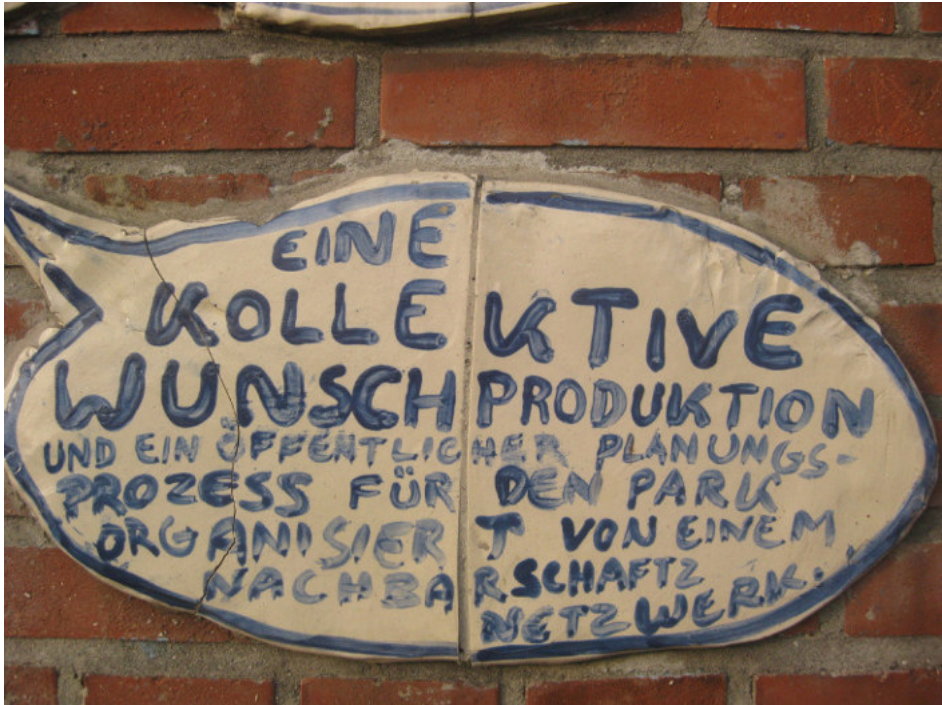 EINE
KOLLEKTIVE
WUNSCHPRODUKTION
UND EIN ÖFFENTLICHER PLANUNGS-
PROZESS FÜR DEN PARK
ORGANISIERT VON EINEM
NACHBARSCHAFTZ
NETZWERK.